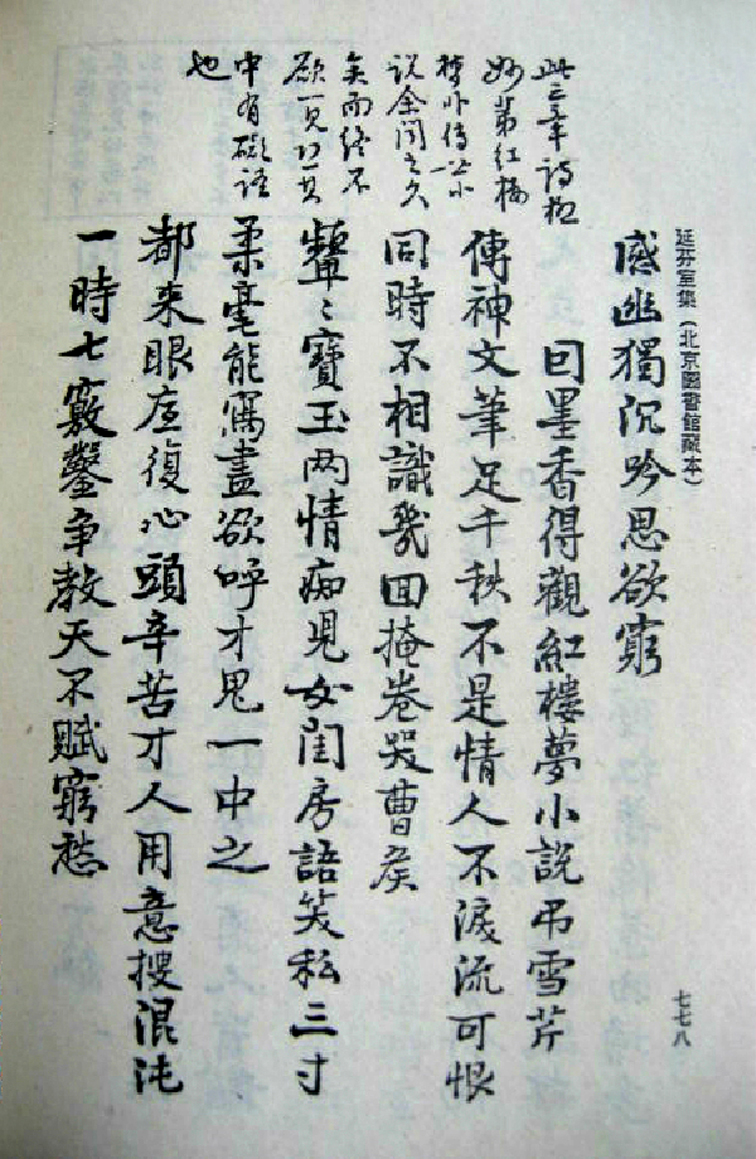 延芬室集(北京圖書館藏本)
感幽獨沉吟思欲窮
因墨香得觀紅樓夢小説弔雪芹
傳神文筆足千秋不是情人不淚流可恨
同時不相識幾回掩卷哭曹侯
顰〻寶玉两情痴児女閨房語笑私三寸
柔毫能寫盡欲呼才鬼一中之
都来眼底復心頭辛苦才人用意搜混沌
一時七竅鑿争教天不賦窮愁
此三章詩極
妙第紅樓
夢非傳世小
説余聞之久
矣而終不
欲一見恐其
中有礙語
也
七七八